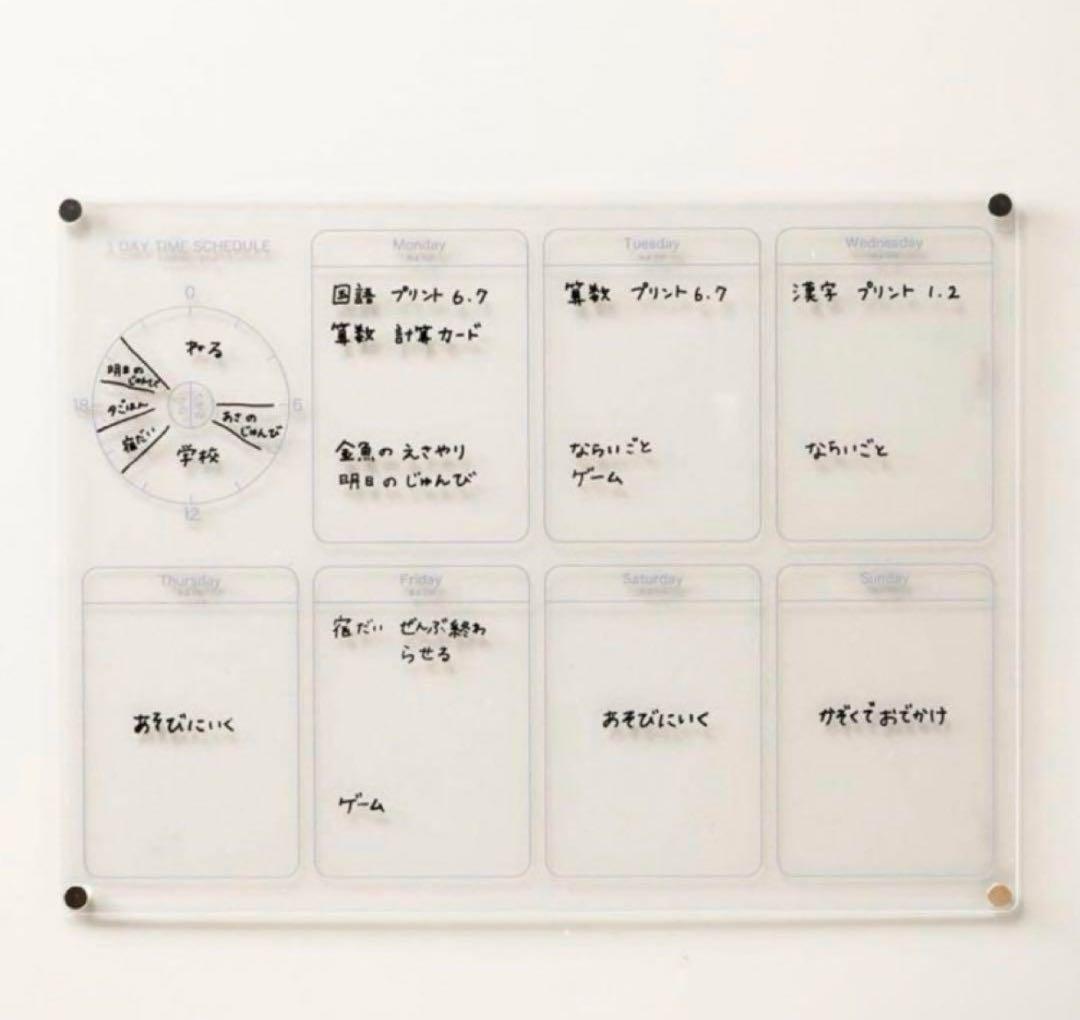 1 DAY TIME SCHEDULE
0
ねる
明日の
じゅんび
夕ごはん
宿だい
18
6
あさの
じゅんび
学校
12
Monday
国語 プリント 6.7
算数 計算カード
金魚の えさやり
明日の じゅんび
Tuesday
算数 プリント 6.7
ならいごと
ゲーム
Wednesday
漢字 プリント 1.2
ならいごと
Thursday
あそびにいく
Friday
宿だい ぜんぶ終わ
らせる
ゲーム
Saturday
あそびにいく
Sunday
かぞくでおでかけ